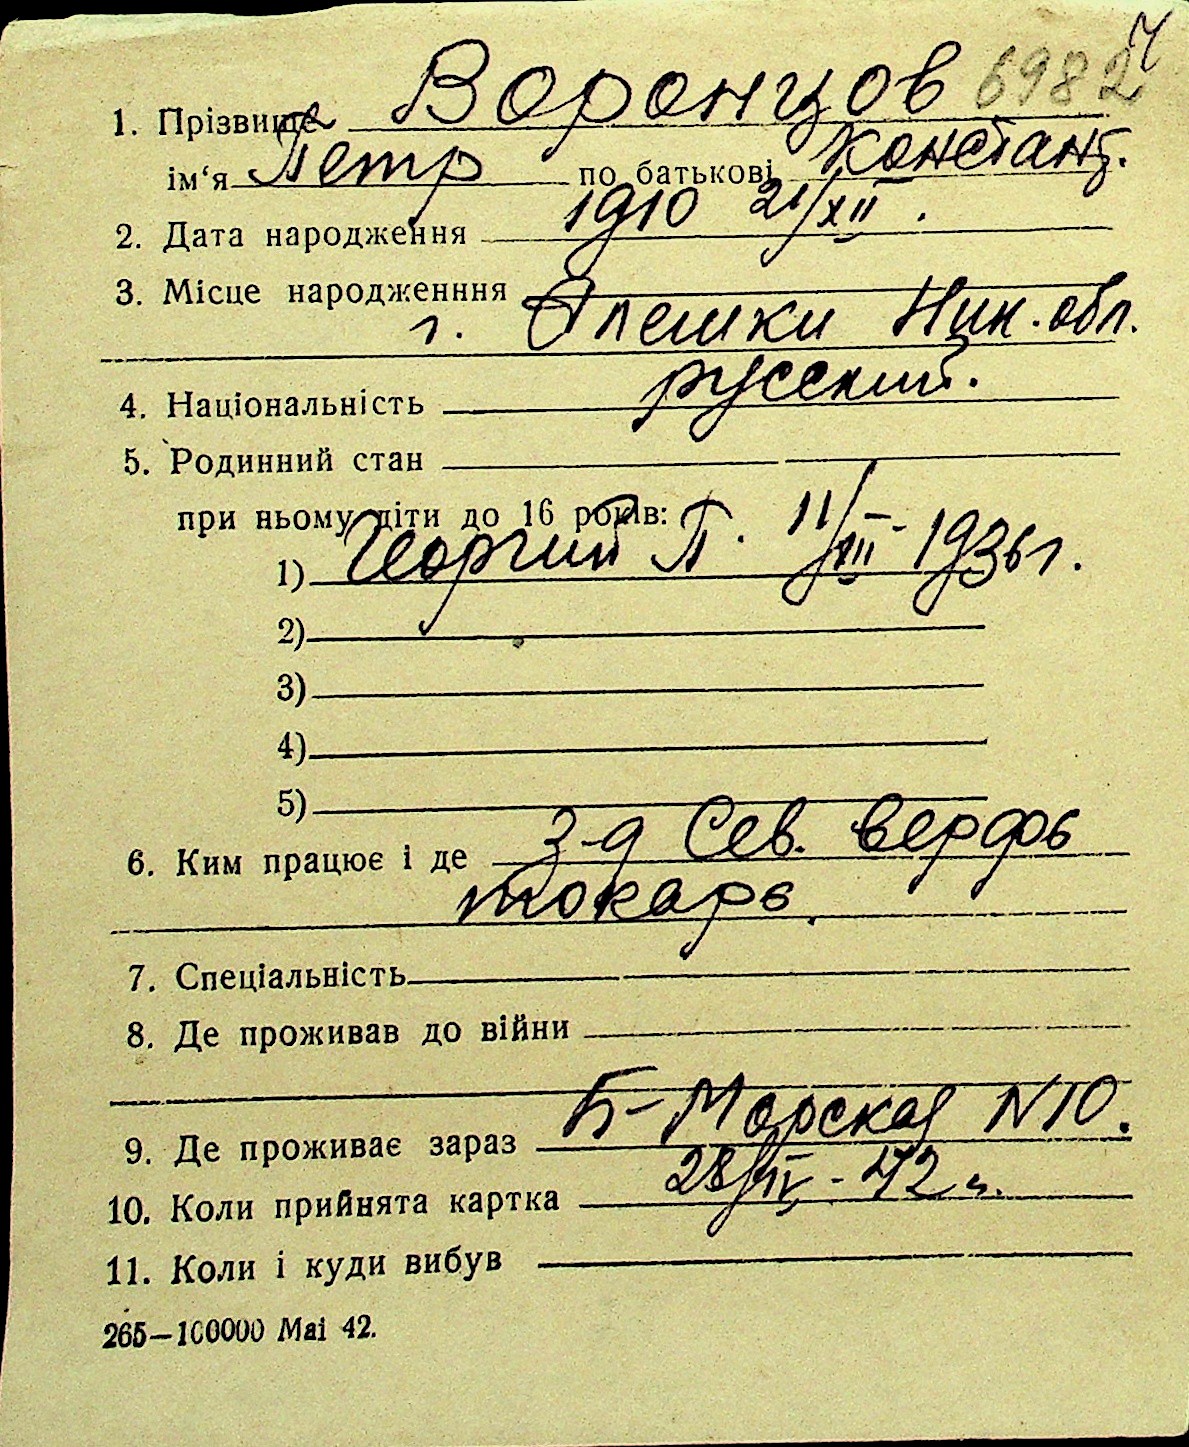 Ч
1. Прізвище Воронцов 6982
ім‘я Петр по батькові Констант.
2. Дата народження 1910 21/XII.
3. Місце народженння
г. Олешки Ник. обл.
4. Національність русский.
5. Родинний стан
при ньому діти до 16 років:
1) Георгий П. 11/XII - 1936 г.
2)
3)
4)
5)
6. Ким працює і де з-д Сев. верфь
токарь.
7. Спеціальність
8. Де проживав до війни
9. Де проживає зараз Б-Морская N10.
10. Коли прийнята картка 28/IV - 42 г.
11. Коли і куди вибув
265—100000 Маі 42.